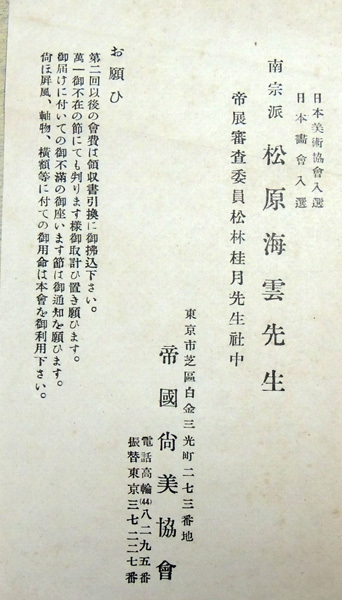 日本美術協會入選
日本畵會入選
南宗派 松原海雲先生
帝展審査委員松林桂月先生社中
東京市芝區白金三光町二七三番地
帝國尙美協會
電話高輪(44)八二九五番
振替東京三七二二七番
お願ひ
第二回以後の會費は領収書引換に御拂込下さい。
萬一御不在の節にても判ります樣御取計ひ置き願ひます。
御届けに付いての御不滿の御座います節は御通知を願ひます。
尙ほ屛風、軸物、橫額等に付ての御用命は本會を御利用下さい。